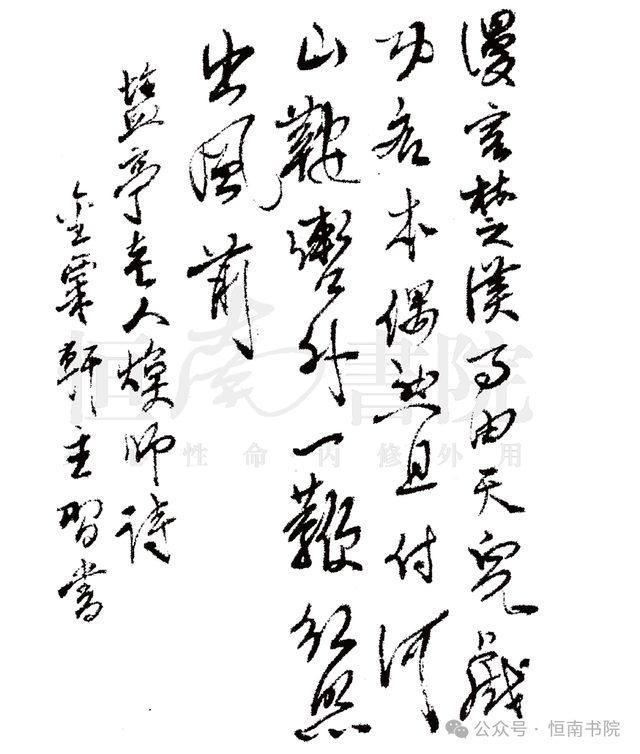 漫言楚漢事由天兒戲
功名本偶然且付河
山鞍轡外一鞭红照
出風前
鹽亭老人煥师诗
金粟軒主習書
恒南書院
性命 内修外用
公众号 · 恒南书院